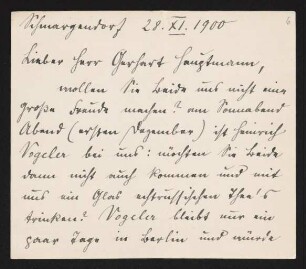 Schmargendorf 28. XI. 1900
Lieber Herr Gerhart Hauptmann,
wollen Sie Beide uns nicht eine
große Freude machen? am Sonnabend
Abend (ersten Dezember) ist Heinrich
Vogeler bei uns: möchten Sie Beide
dann nicht auch kommen und mit
uns ein Glas echtrussischen Thee's
trinken? Vogeler bleibt nur ein
paar Tage in Berlin und würde